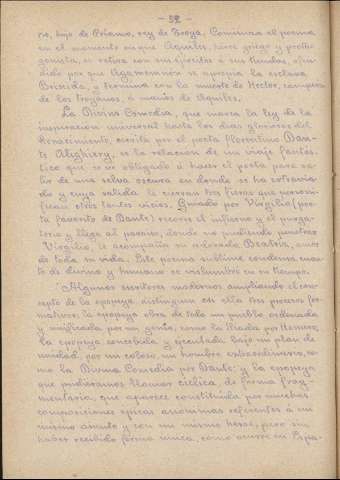 - 52 -
ris, hijo de Príamo, rey de Troya. Comienza el poema
en el momento en que Aquiles, héroe griego y prota-
gonista, se retira con sus ejércitos a sus tiendas, ofen-
dido por que Agamennón se apropia la esclava
Briseida, y termina con la muerte de Hector, campeón
de los troyanos, a manos de Aquiles.
La Divina Comedia, que marca la ley de la
inspiración universal hasta los días gloriosos del
Renacimiento, escrita por el poeta florentino Dan-
te Alighiery, es la relación de un viaje fantás-
tico que se ve obligado a hacer el poeta para sa-
lir de una selva oscura en donde se ha extravia-
do y cuya salida la cierran tres fieras que personi-
fican otros tantos vicios. Guiado por Virgilio (poe-
ta favorito de Dante) recorre el infierno y el purga-
torio y llega al paraíso, donde no pudiendo penetrar
Virgilio, le acompaña su adorada Beatriz, amor
de toda su vida. Este poema sublime condensa cuan-
to de divino y humano se vislumbró en su tiempo.
Algunos escritores modernos ampliando el con-
cepto de la epopeya, distinguen en ella tres procesos for-
mativos: la epopeya obra de todo un pueblo ordenada
y unificada por un genio, como la Iliada por Homero;
la epopeya concebida y ejecutada bajo un plan de
unidad por un coloso, un hombre extraordinario, co-
mo la Divina Comedia por Dante; y la epopeya
que pudiéramos llamar cíclica de forma frag-
mentaria, que aparece constituida por muchas
composiciones épicas anónimas referentes á un
mismo asunto y con un mismo héroe, pero sin
haber recibido forma única, como ocurre en Espa-